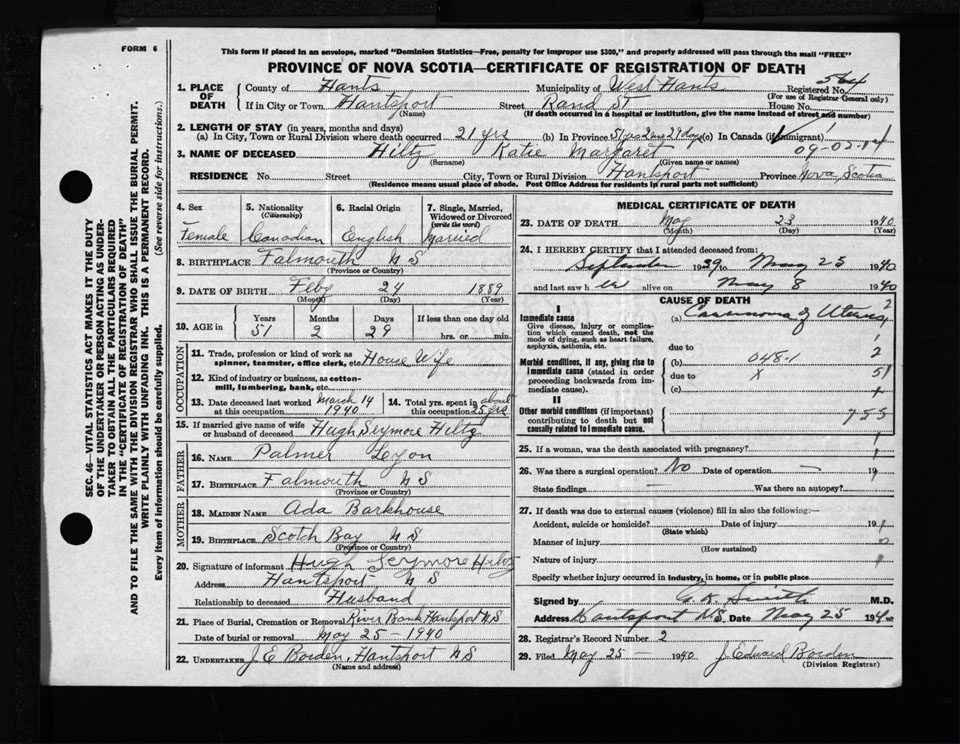 FORM 6
This form if placed in an envelope, marked "Dominion Statistics—Free, penalty for improper use $300," and properly addressed will pass through the mail "FREE"
PROVINCE OF NOVA SCOTIA—CERTIFICATE OF REGISTRATION OF DEATH
SEC. 46—VITAL STATISTICS ACT MAKES IT THE DUTY
OF THE UNDERTAKER OR PERSON ACTING AS UNDER-
TAKER TO OBTAIN ALL THE PARTICULARS REQUIRED
IN THE "CERTIFICATE OF REGISTRATION OF DEATH"
AND TO FILE THE SAME WITH THE DIVISION REGISTRAR WHO SHALL ISSUE THE BURIAL PERMIT.
WRITE PLAINLY WITH UNFADING INK. THIS IS A PERMANENT RECORD.
Every item of information should be carefully supplied. (See reverse side for instructions.)
1. PLACE OF DEATH
County of Hants Municipality of West Hants Registered No. 564
(For use of Registrar-General only)
If in City or Town Hantsport Street Rand St House No.
(Name) (If death occurred in a hospital or institution, give the name instead of street and number)
2. LENGTH OF STAY (in years, months and days)
(a) In City, Town or Rural Division where death occurred 21 yrs (b) In Province 51 yrs 2 mos 29 days (c) In Canada (if immigrant)
09-02-14
3. NAME OF DECEASED Hiltz Katie Margaret
(Surname) (Given name or names)
RESIDENCE No. Street City, Town or Rural Division Hantsport Province Nova Scotia
(Residence means usual place of abode. Post Office Address for residents in rural parts not sufficient)
4. Sex Female
5. Nationality (Citizenship) Canadian
6. Racial Origin English
7. Single, Married, Widowed or Divorced (write the word) Married
8. BIRTHPLACE Falmouth N S
(Province or Country)
9. DATE OF BIRTH Feby 24 1889
(Month) (Day) (Year)
10. AGE in Years 51 Months 2 Days 29 If less than one day old hrs. or min.
OCCUPATION
11. Trade, profession or kind of work as spinner, teamster, office clerk, etc. House Wife
12. Kind of industry or business, as cotton-mill, lumbering, bank, etc.
13. Date deceased last worked at this occupation March 14 1940
14. Total yrs. spent in this occupation about 25 yrs
15. If married give name of wife or husband of deceased Hugh Seymore Hiltz
FATHER
16. NAME Palmer Lyon
17. BIRTHPLACE Falmouth N S
(Province or Country)
MOTHER
18. MAIDEN NAME Ada Barkhouse
19. BIRTHPLACE Scotch Bay N S
(Province or Country)
20. Signature of informant Hugh Seymore Hiltz
Address Hantsport N S
Relationship to deceased Husband
21. Place of Burial, Cremation or Removal River Bank Hantsport N.S
Date of burial or removal May 25 - 1940
22. UNDERTAKER J E Borden, Hantsport N S
(Name and address)
MEDICAL CERTIFICATE OF DEATH
23. DATE OF DEATH May 23 1940
(Month) (Day) (Year)
24. I HEREBY CERTIFY that I attended deceased from:
September 1939 to May 25 1940
and last saw her alive on May 8 1940
CAUSE OF DEATH
I
Immediate cause
Give disease, injury or complication which caused death, not the mode of dying, such as heart failure, asphyxia, asthenia, etc.
(a) Carcinoma of Uterus
due to
Morbid conditions, if any, giving rise to immediate cause (stated in order proceeding backwards from immediate cause).
(b) 048-1
due to X
(c)
II
Other morbid conditions (if important) contributing to death but not causally related to immediate cause.
2
2
51
755
25. If a woman, was the death associated with pregnancy?
26. Was there a surgical operation? No Date of operation — 19
State findings Was there an autopsy?
27. If death was due to external causes (violence) fill in also the following:—
Accident, suicide or homicide? Date of injury 19
(State which)
Manner of injury
(How sustained)
Nature of injury
Specify whether injury occurred in industry, in home, or in public place
Signed by G. K. Smith M.D.
Address Hantsport N.S. Date May 25 1940
28. Registrar's Record Number 2
29. Filed May 25 — 1940 J Edward Borden
(Division Registrar)